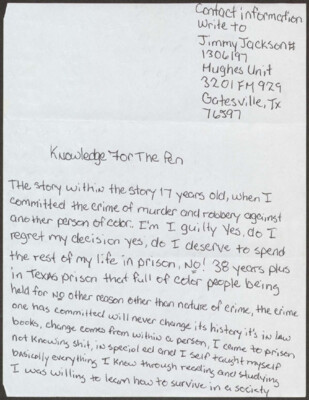 Contact information
Write to
Jimmy Jackson#
1306197
Hughes Unit
3201 FM 929
Gatesville, Tx
76597
Knowledge For The Pen
The story within the story 17 years old, when I
committed the crime of murder and robbery against
another person of color. I'm I guilty yes, do I
regret my decision yes, do I deserve to spend
the rest of my life in prison, No! 38 years plus
in Texas prison that full of color people being
held for no other reason other than nature of crime, the crime
one has committed will never change its history it's in law
books, change comes from within a person, I came to prison
not knowing shit, in special ed and I self taught myself
basically everything I knew through reading and studying
I was willing to learn how to survive in a society